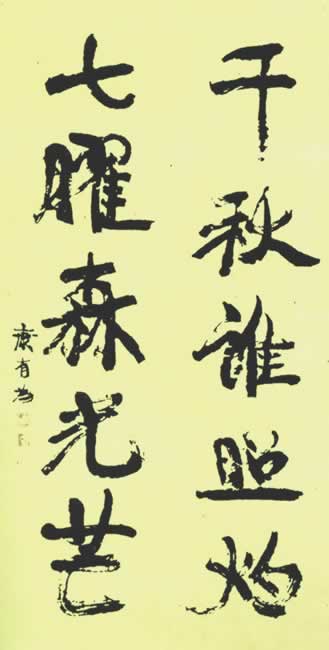 千秋谁照灼
七曜森光芒
康有为